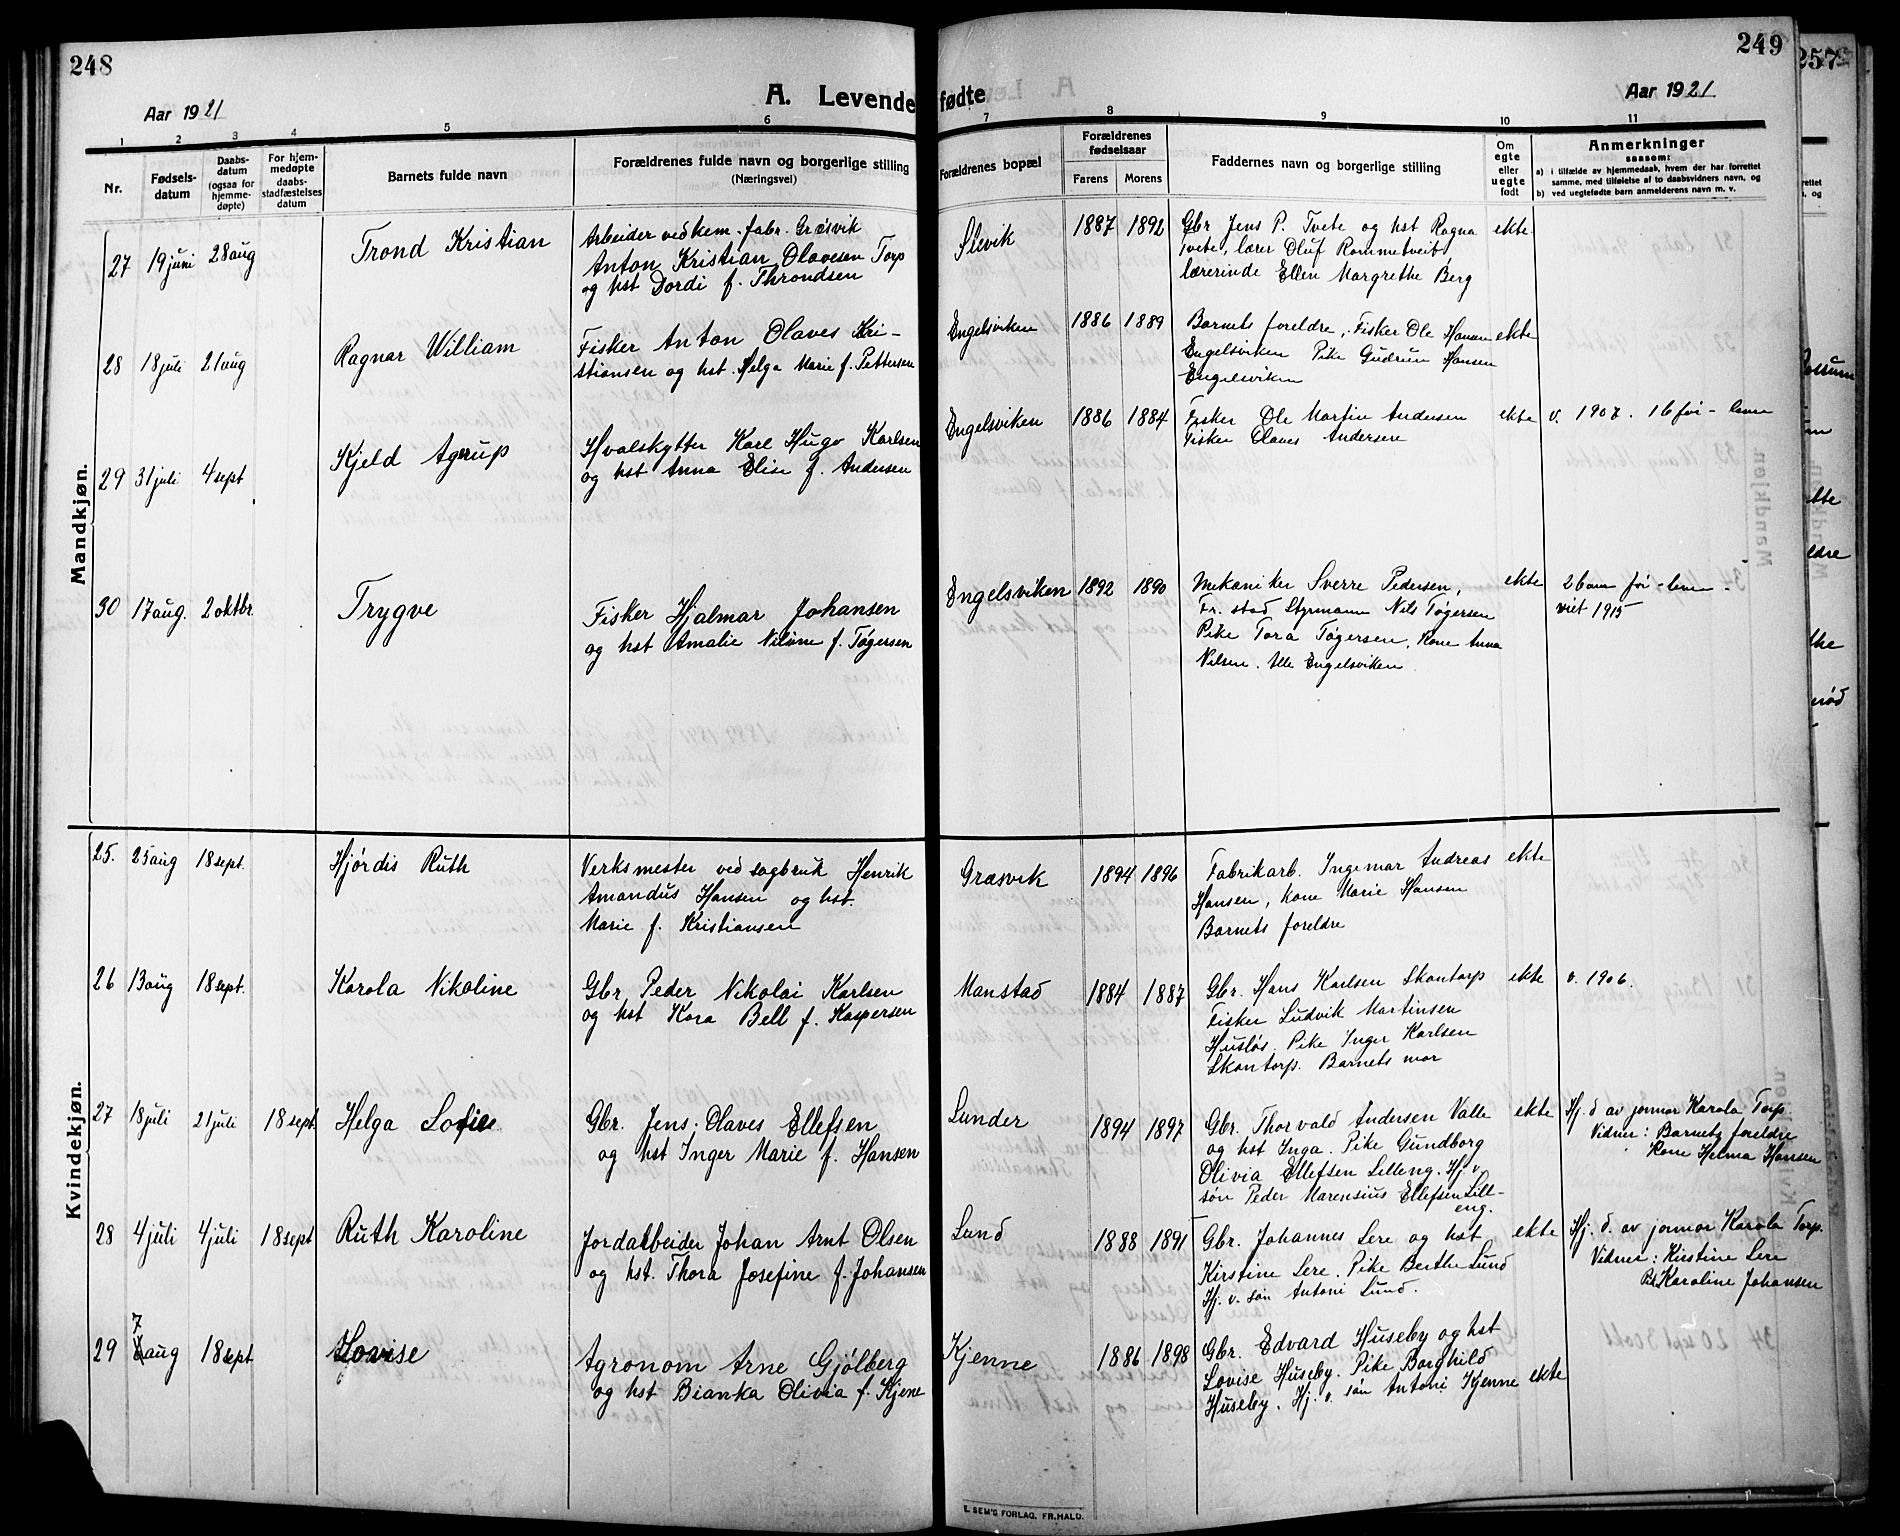 248
Aar 1921
A. Levende
1 2 3 4 5 6
Nr.
Fødsels-
datum
Daabs-
datum
(ogsaa for
hjemme-
døpte)
For hjem-
medøpte
daabs-
stadfæstelses
datum
Barnets fulde navn
Forældrenes fulde navn og borgerlige stilling
(Næringsvei)
Mandkjøn.
27 19 juni 28 aug Trond Kristian
Arbeider ved kem. fabr. Græsvik
Anton Kristian Olavesen Torp
og hst Dordi f. Throndsen
28 18 juli 21 aug Ragnar William
Fisker Anton Olaves Kri-
stiansen og hst. Helga Marie f. Pettersen
29 31 juli 4 sept Kjeld Agerup
Hvalskytter Karl Hugo Karlsen
og hst Anna Elise f. Andersen
30 17 aug. 2 oktbr Trygve
Fisker Hjalmar Johansen
og hst Amalie Nilsine f. Tøgersen
Kvindekjøn.
25. 25 aug 18 sept. Hjørdis Ruth
Verksmester ved sagbruk Henrik
Amandus Hansen og hst.
Marie f. Kristiansen
26 13 aug 18 sept. Karola Nikoline
Gbr Peder Nikolai Karlsen
og hst Kara Bell f. Kaspersen
27 18 juli 21 juli 18 sept Helga Sofie
Gbr. Jens Olaves Ellefsen
og hst Inger Marie f. Hansen
28 4 juli 4 juli 18 sept Ruth Karoline
Jordarbeider Johan Arnt Olsen
og hst. Thora Josefine f. Johansen
29 7 aug 18 sept Lovise
Agronom Arne Gjølberg
og hst Bianka Olivia f. Kjene
249
257
fødte
Aar 1921
7 8 9 10 11
Forældrenes bopæl
Forældrenes
fødselsaar
Farens Morens
Faddernes navn og borgerlige stilling
Om
egte
eller
uegte
født
Anmerkninger
saasom:
a) i tilfælde av hjemmedaab, hvem der har forrettet
samme, med tilføielse af to daabsvidners navn, og
b) ved uegtefødte barn anmelderens navn m. v.
Slevik 1887 1892 Gbr Jens P. Tvete og hst Ragna ekte
Tvete, lærer Oluf Rommetveit,
lærerinde Ellen Margrethe Berg
Engelsviken 1886 1889 Barnets foreldre, Fisker Ole Hansen ekte
Engelsviken Pike Gudrun Hansen
Engelsviken
Engelsviken 1886 1884 Fisker Ole Martin Andersen ekte v. 1907. 16 før-leven
Fisker Olaves Andersen
Engelsviken 1892 1890 Mekaniker Sverre Pedersen, ekte 2 barn før-leven
Fr. stad Styrmann Nils Tøgersen viet 1915
Pike Tora Tøgersen, Kone Anna
Nilsen. Alle Engelsviken
Græsvik 1894 1896 Fabrikarb. Ingemar Andreas ekte
Hansen, kone Marie Hansen
Barnets foreldre
Manstad 1884 1887 Gbr. Hans Karlsen Skontorp ekte v. 1906.
Fisker Ludvik Martinsen
Husløs. Pike Inger Karlsen
Skontorp. Barnets mor
Lunder 1894 1897 Gbr. Thorvald Andersen Valle ekte
og hst Inga. Pike Gundborg
Olivia Ellefsen Lilleng. Hj. v.
søn Peder Marensius Ellefsen Lill-
eng.
Hj. d av jormor Karola Torp.
Vidner: Barnets foreldre
Kone Helma Hansen
Lund 1888 1891 Gbr. Johannes Lere og hst ekte
Kirstine Lere. Pike Berthe Lund
Hj. v. søn Antoni Lund.
Hj. d. av jormor Karola Torp.
Vidner: Kirstine Lere
Karoline Johansen
Kjenne 1886 1898 Gbr. Edvard Huseby og hst
Lovise Huseby. Pike Borghild
Huseby. Hj. v. søn Antoni Kjenne ekte
E. SEM'S FORLAG, FR.HALD.